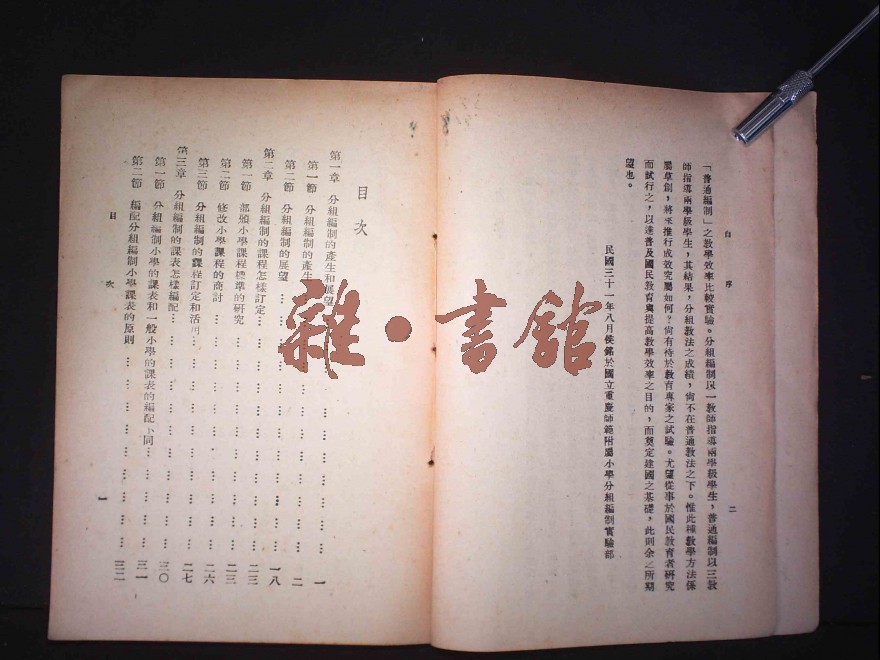 自序
二
「普通編制」之教學效率比較實驗。分組編制以一教師指導兩學級學生，普通編制以三教
師指導兩學級學生，其結果，分組教法之成績，尙不在普通教法之下。惟此種教學方法係
屬草創，將來推行成效究屬如何？尙有待於教育專家之試驗。尤望從事於國民教育者研究
而試行之，以達普及國民教育與提高教學效率之目的，而奠定建國之基礎，此則余之所期
望也。
民國三十一年八月侯銘於國立重慶師範附屬小學分組編制實驗部
目次
第一章 分組編制的產生和展望…………一
第一節 分組編制的產生…………二
第二節 分組編制的展望…………一八
第二章 分組編制的課程怎樣訂定…………二三
第一節 部頒小學課程標準的研究…………二三
第二節 修改小學課程的商討…………二六
第三節 分組編制的課程訂定和活用…………二七
第三章 分組編制的課表怎樣編配…………三〇
第一節 分組編制小學的課表和一般小學的課表的編配不同…………三一
第二節 編配分組編制小學課表的原則…………三二
目次
一
雜·書館